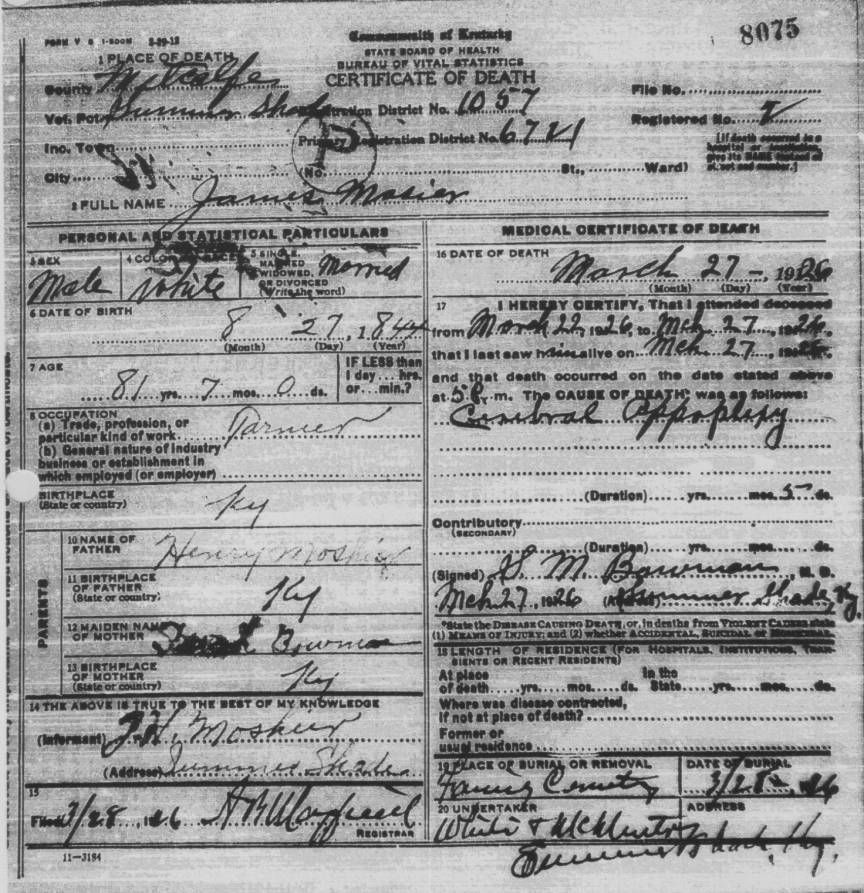 8075
FORM V S 1-500M 5-29-12
Commonwealth of Kentucky
STATE BOARD OF HEALTH
BUREAU OF VITAL STATISTICS
CERTIFICATE OF DEATH
1 PLACE OF DEATH
County Metcalfe
File No.
Vot. Pct. Summer Shade Registration District No. 1057
Registered No.
Inc. Town Primary Registration District No. 6721
[If death occurred in a hospital or institution, give its NAME instead of street and number.]
City (No. St., Ward)
2 FULL NAME James Mosier
PERSONAL AND STATISTICAL PARTICULARS
3 SEX Male
4 COLOR OR RACE White
5 SINGLE, MARRIED WIDOWED, OR DIVORCED (Write the word) Married
6 DATE OF BIRTH
8 27, 1844
(Month) (Day) (Year)
7 AGE
81 yrs. 7 mos. 0 ds.
IF LESS than 1 day... hrs. or... min.?
8 OCCUPATION
(a) Trade, profession, or particular kind of work Farmer
(b) General nature of industry
business or establishment in
which employed (or employer)
BIRTHPLACE
(State or country) Ky
PARENTS
10 NAME OF FATHER Henry Moshier
11 BIRTHPLACE OF FATHER (State or country) Ky
12 MAIDEN NAME OF MOTHER Bowman
13 BIRTHPLACE OF MOTHER (State or country) Ky
14 THE ABOVE IS TRUE TO THE BEST OF MY KNOWLEDGE
(Informant) J. H. Moshier
(Address) Summer Shade
15
Filed 3/28, 1926
REGISTRAR
11-3184
MEDICAL CERTIFICATE OF DEATH
16 DATE OF DEATH
March 27, 1926
(Month) (Day) (Year)
17 I HEREBY CERTIFY, That I attended deceased
from March 22, 1926, to Mch. 27, 1926,
that I last saw him alive on Mch 27, 1926,
and that death occurred on the date stated above
at 5 P. m. The CAUSE OF DEATH* was as follows:
Cerebral Appoplexy
(Duration) yrs. mos. 5 ds.
Contributory
(SECONDARY)
(Duration) yrs. mos. ds.
(Signed) H. M. Bowman M. D.
Mch 27, 1926 (Address) Summer Shade, Ky.
*State the DISEASE CAUSING DEATH, or, in deaths from VIOLENT CAUSES, state
(1) MEANS OF INJURY; and (2) whether ACCIDENTAL, SUICIDAL or HOMICIDAL
18 LENGTH OF RESIDENCE (FOR HOSPITALS, INSTITUTIONS, TRANSIENTS OR RECENT RESIDENTS)
At place of death yrs. mos. ds. In the State yrs. mos. ds.
Where was disease contracted,
if not at place of death?
Former or
usual residence
19 PLACE OF BURIAL OR REMOVAL
Family Cemetery
DATE OF BURIAL
3/28, 1926
20 UNDERTAKER
White &
ADDRESS
Summer Shade, Ky.